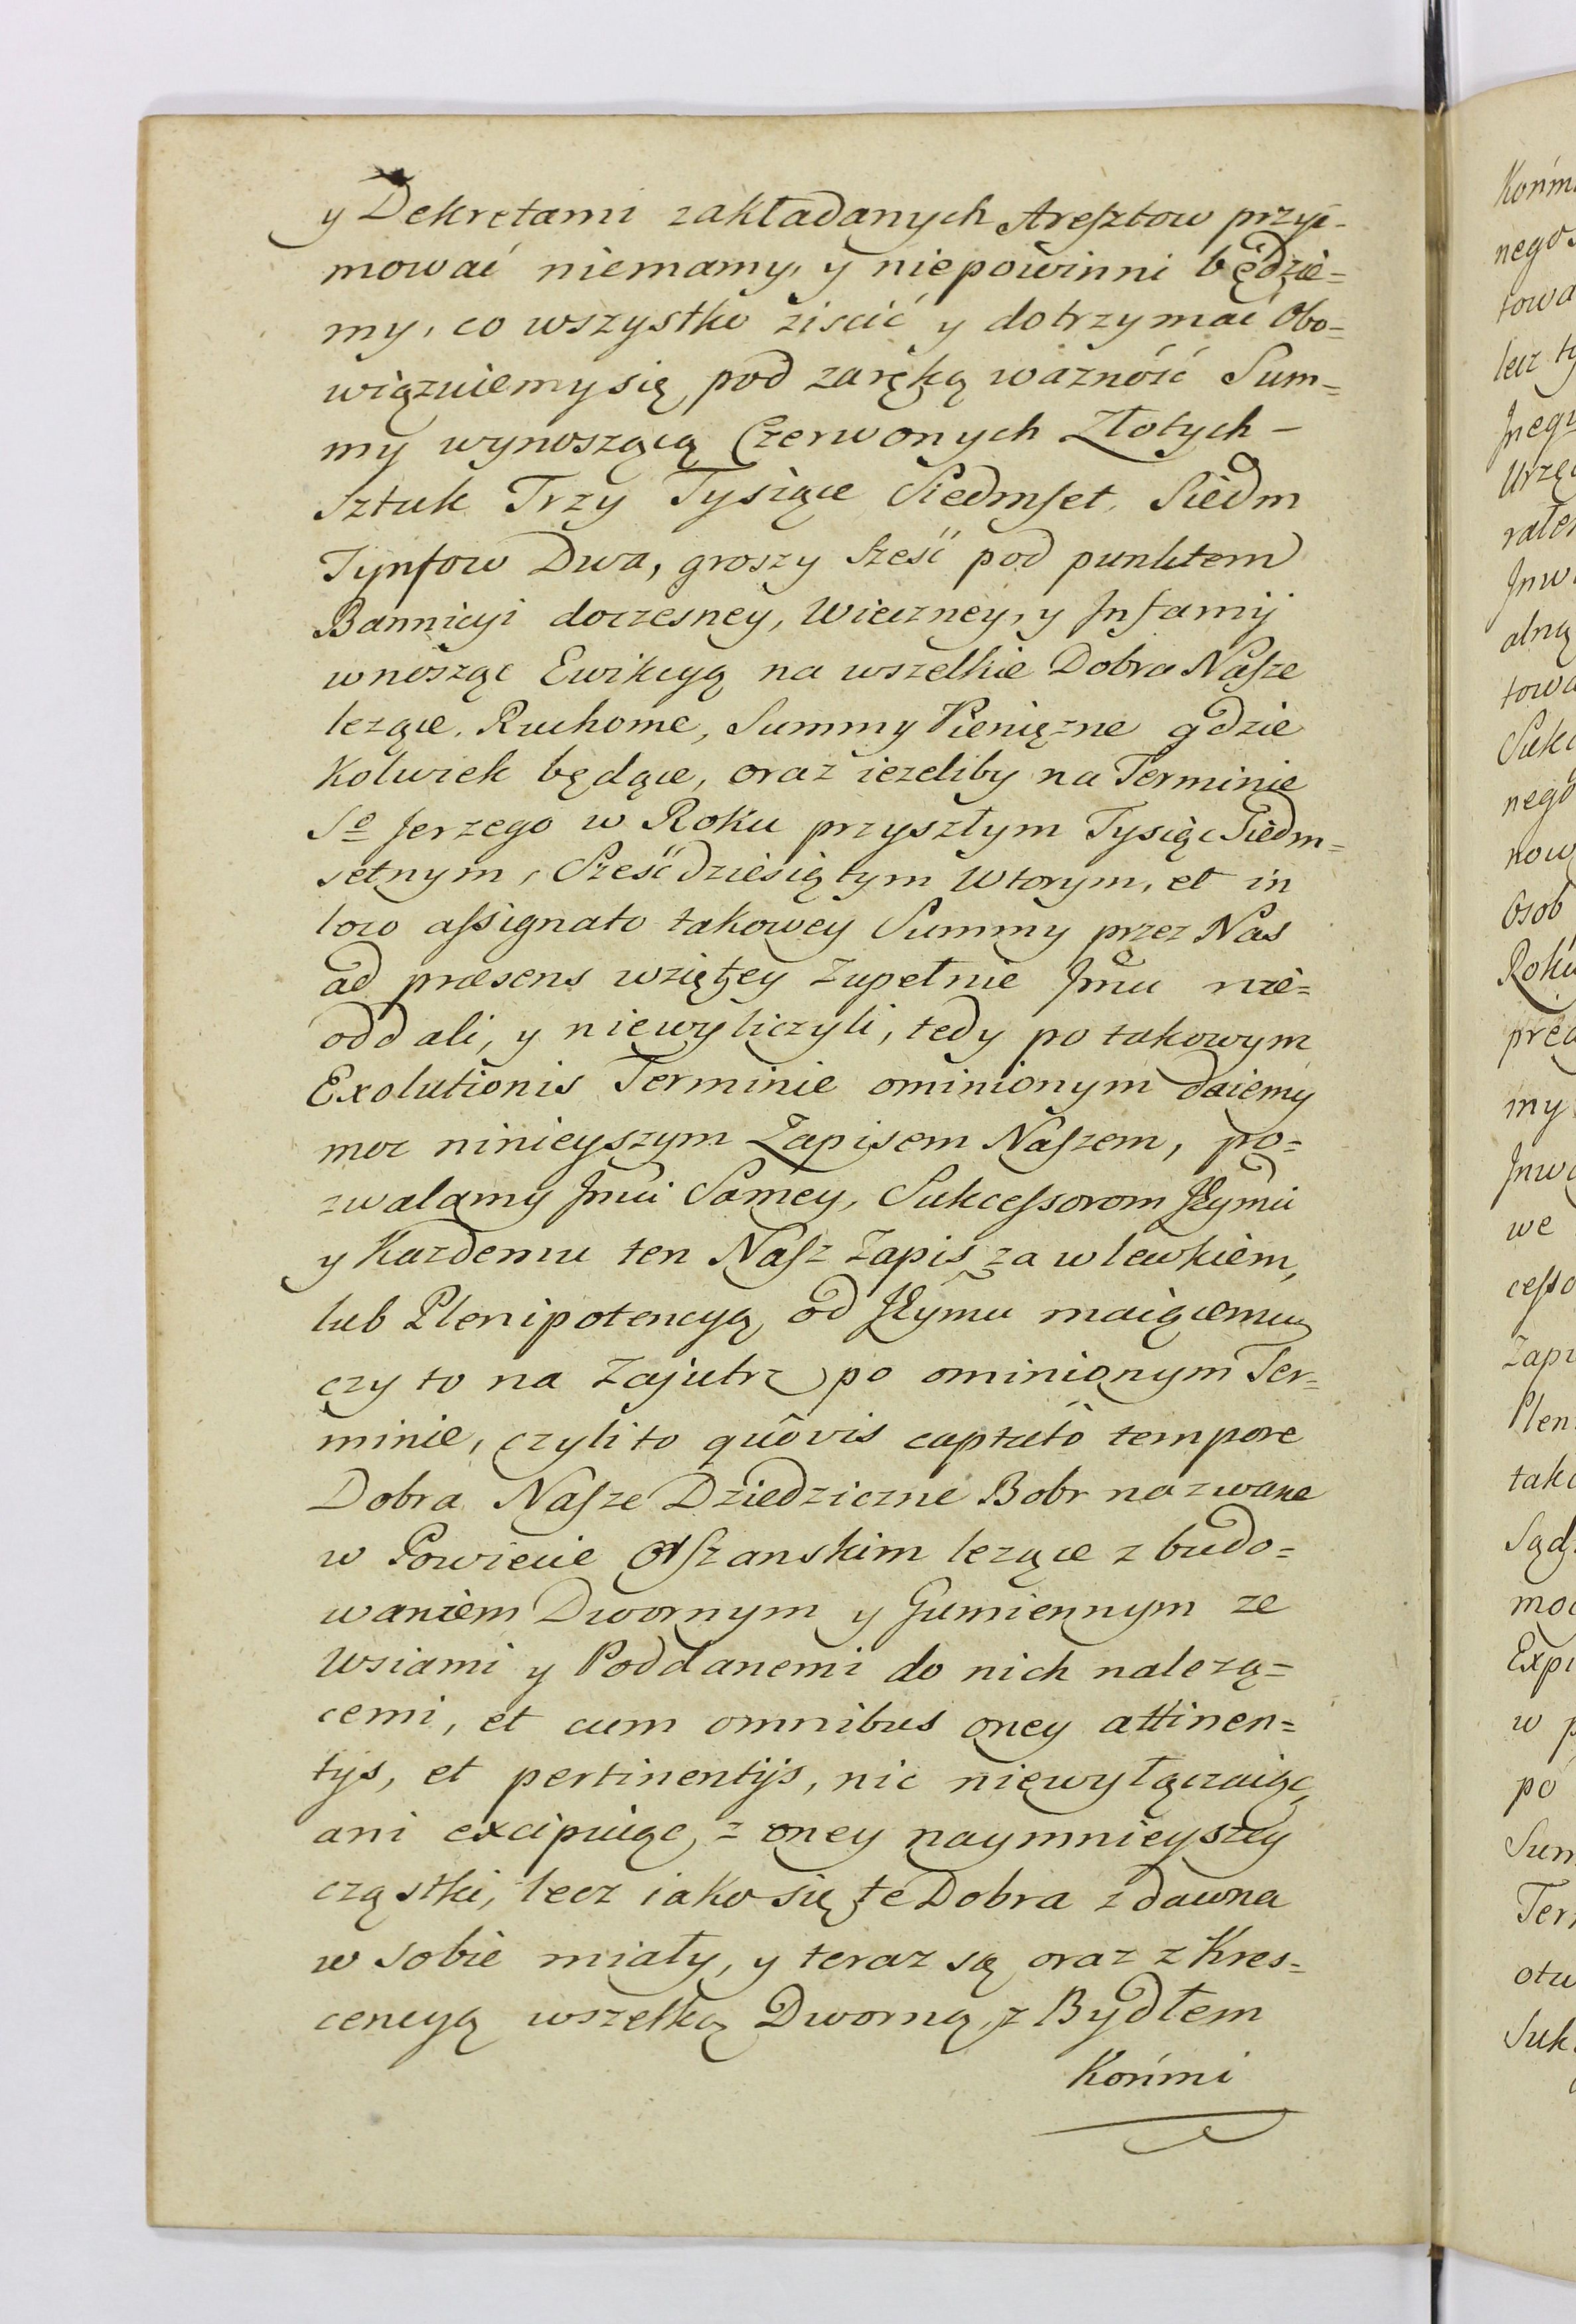 y Dekretami zakładanych Aresztow przyi-
mować niemamy, y niepowinni będzie=
my, co wszystko ziscić y dotrzymać Obo=
wiązuiemysię pod zaręką wazność Sum=
my wynoszącą Czerwonych Złotych -
Sztuk Trzy Tysiące Siedmset Siedm
Tynfow Dwa, groszy Sześć pod punktem
Bannicyi doczesney, Wieczney, y Infamij
wnosząc Ewikcyą na wszelkie Dobra Nasze
lezące, Ruchome, Summy Pienięzne gdzie
Kolwiek będące, oraz iezeliby na Terminie
So Jerzego w Roku przyszłym Tysiąc Siedm=
setnym, Sześćdziesiątym Wtorym, et in
loco assignato takowey Summy przez Nas
ad praesens wziętey Zupełnie Jmu nie=
oddali, y niewyliczyli, tedy po takowym
Exolutionis Terminie ominionym daiemy
moc ninieyszym Zapisem Naszem, po=
zwalamy Jmci Samey, Sukcessorom JEymu
y Kazdemu ten Nasz Zapis za wlewkiem,
lub Plenipotencyą od JEymu maiącemu
czy to na Zajutrz po ominionym Ter=
minie, czyli to quôvis captatô tempore
Dobra Nasze Dziedziczne Bobr nazwane
w Powiecie Orszanskim lezące z budo=
waniem Dwornym y Gumiennym ze
Wsiami y Poddanemi do nich nalezą=
cemi, et cum omnibus oney attinen=
tijs, et pertinentijs, nic niewyłączaiąc,
ani excipuiąc, z oney naymnieyszey
cząstki, lecz iako się te Dobra z dawna
w sobie miały, y teraz są oraz z Kres=
cencyą wszelką Dworną, z Bydłem
Końmi